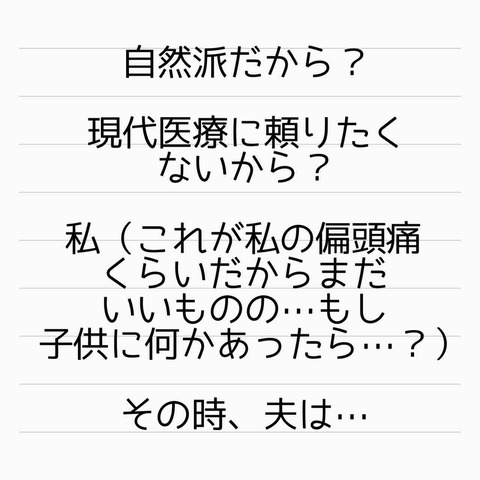 自然派だから？
現代医療に頼りたく
ないから？
私（これが私の偏頭痛
くらいだからまだ
いいものの…もし
子供に何かあったら…？）
その時、夫は…